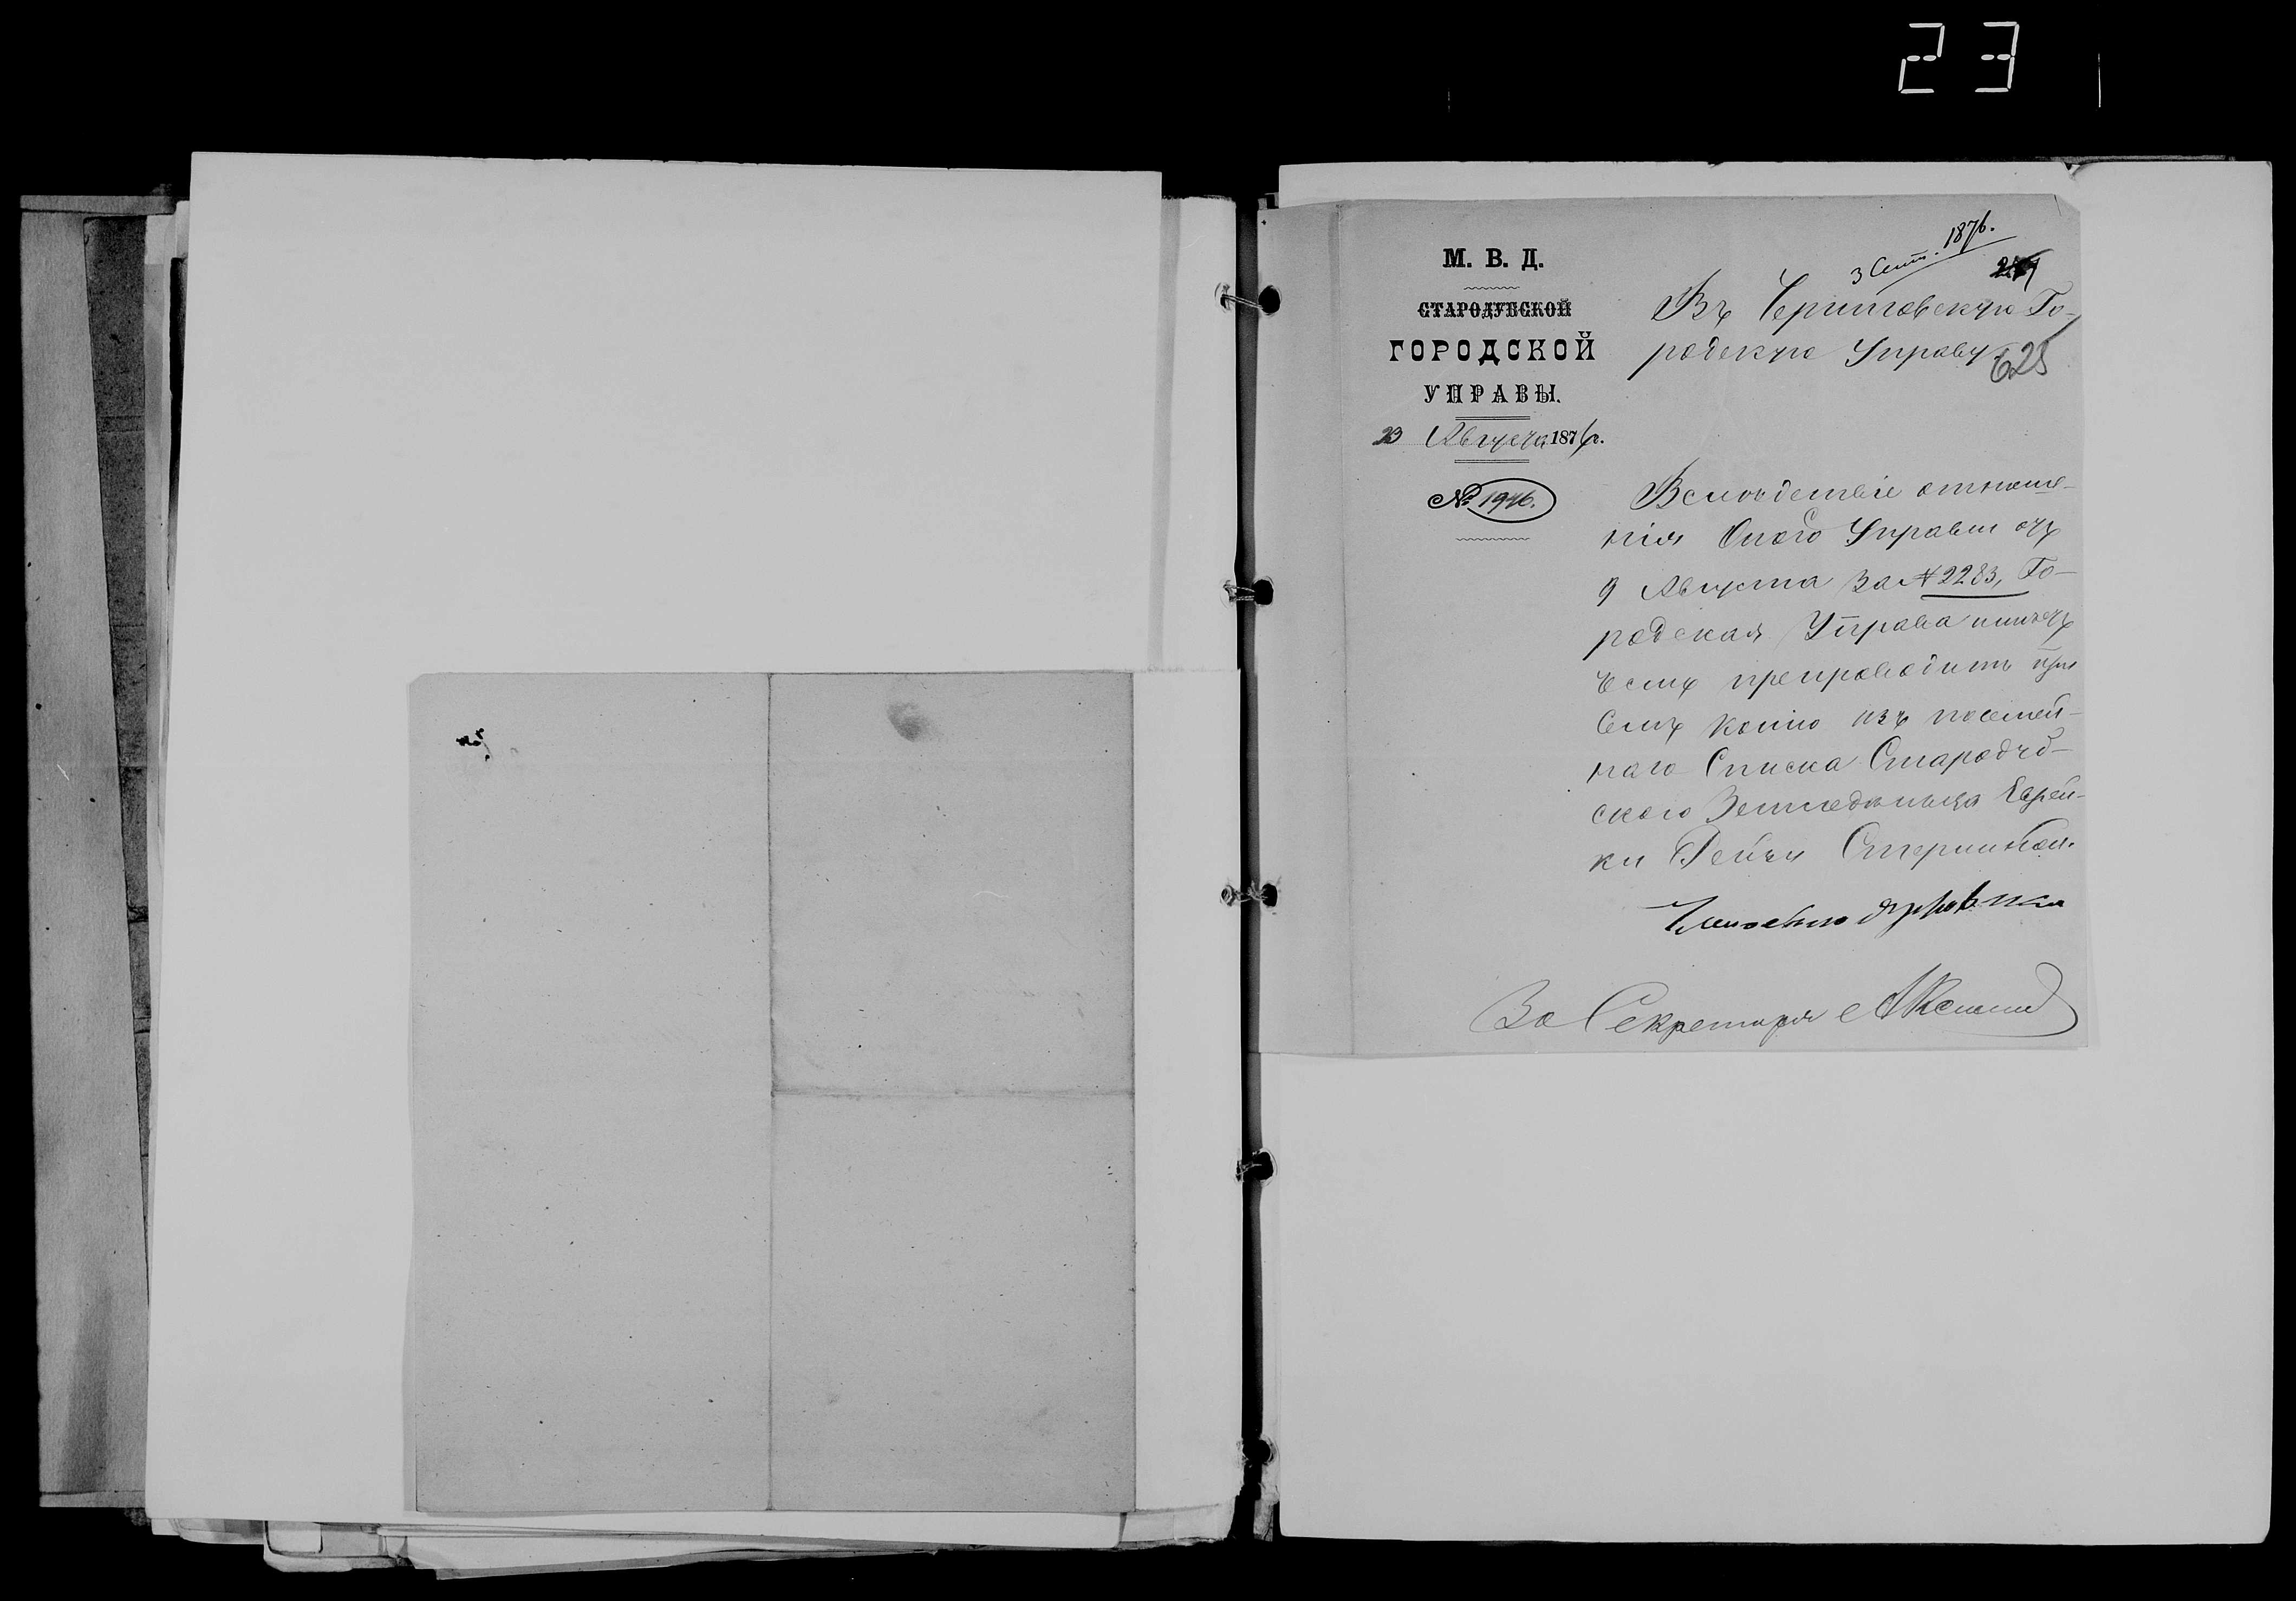 23
М. В. Д.
СТАРОДУБСКОЙ
ГОРОДСКОЙ
УПРАВЫ.
23 Августа 1876 г.
№ 1946.
3 Сент. 1876.
Въ Черниговскую Го-
родскую Управу
625
Вслѣдствіе отноше-
нія Оной Управы отъ
9 Августа за № 2283, Го-
родская Управа имѣетъ
честь препроводить при
семъ копію изъ посемей-
наго Списка Стародуб-
скаго Земледѣльца Еврей-
ки Рейзи
За Секретаря